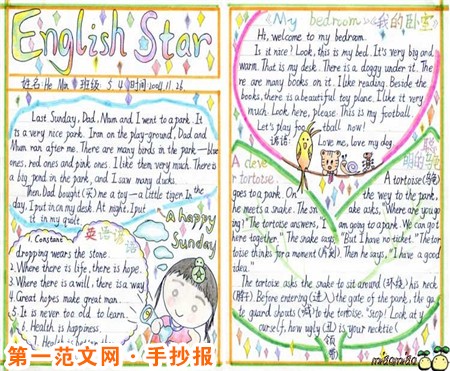 English Star
姓名: He Min 班级 5.4 时间 2004.11.26
Last Sunday, Dad, Mum and I went to a park. It
is a very nice park. I run on the play-ground, Dad and
Mum ran after me. There are many birds in the park—blue
ones, red ones and pink ones. I like them very much. There is
a big pond in the park, and I saw many ducks.
Then, Dad bought (买) me a toy—a little tiger. In the
day, I put it in my desk. At night, I put
it in my quilt.
A happy
Sunday
英语谚语
1. Constant
dropping wears the stone.
2. Where there is life, there is hope.
3. Where there is a will, there is a way
4. Great hopes make great man.
5. It is never too old to learn.
6. Health is happiness.
My bedroom 我的卧室
Hi, welcome to my bedroom.
Is it nice? Look, this is my bed. It's very big and
warm. That is my desk. There is a doggy under it. The
re are many books on it. I like reading. Beside the
books, there is a beautiful toy plane. I like it very
much. Look here, please. This is my football.
Let's play football now!
谚语: Love me, love my dog.
A clever
tortoise.
聪明的龟
A tortoise (乌龟)
goes to a park. On the way to the park,
he meets a snake. The snake asks, "Where are you go
ing?" The tortoise answers, "I am going to a park. We can go t
here together." The snake says "But I have no ticket." The tor
toise thinks for a moment (片刻). Then he says, "I have a good
idea."
The tortoise asks the snake to sit around (环绕) his neck
(脖子). Before entering (进入) the gate of the park, the ga
te guard shouts (喊) to the tortoise. "Stop! Look at y
ourself, how ugly (丑) is your necktie (
领带)
miaomiao
第一范文网·手抄报